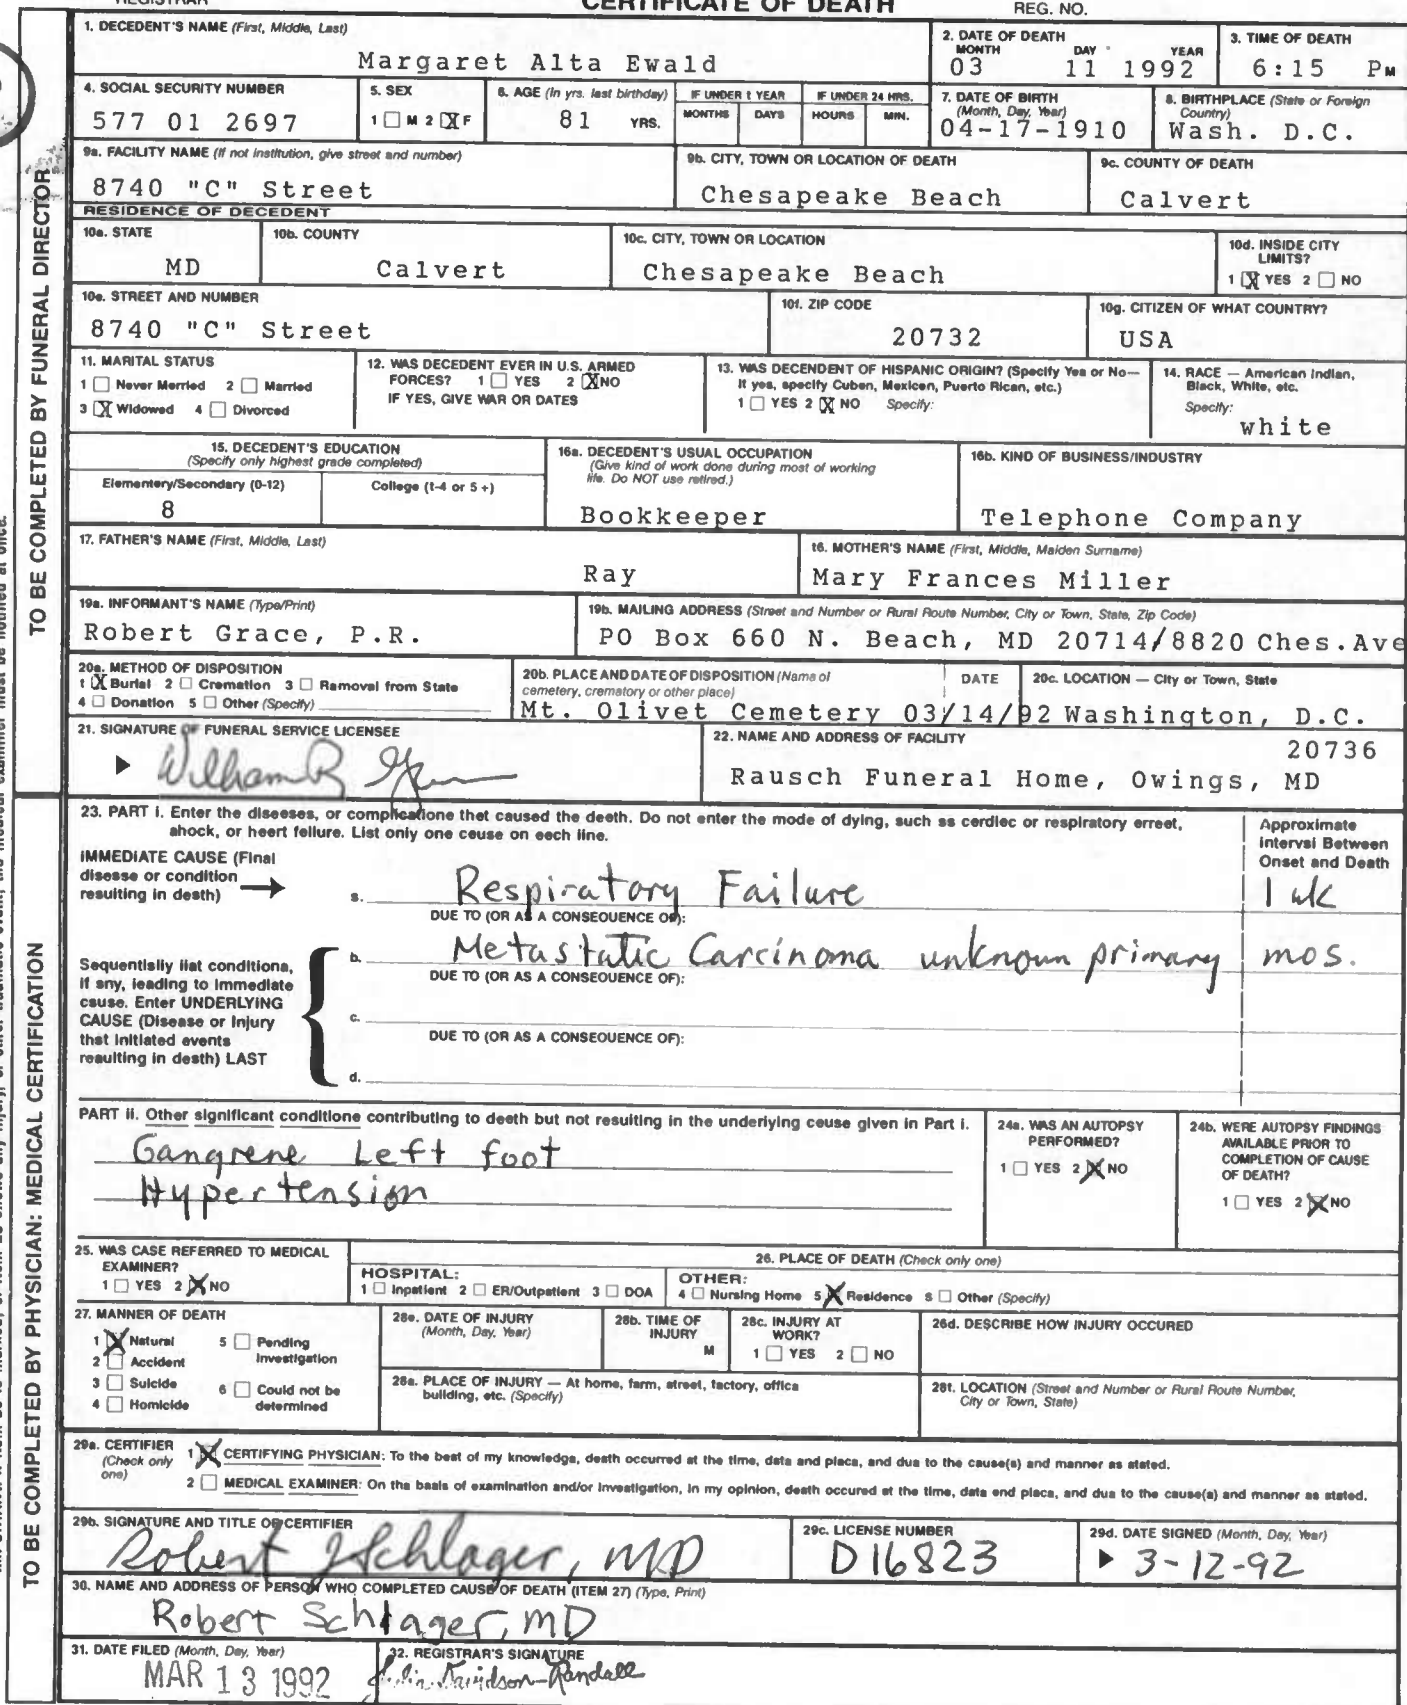 REGISTRAR CERTIFICATE OF DEATH REG. NO.
1. DECEDENT'S NAME (First, Middle, Last)
Margaret Alta Ewald
2. DATE OF DEATH
MONTH DAY YEAR
03 11 1992
3. TIME OF DEATH
6:15 PM
4. SOCIAL SECURITY NUMBER
577 01 2697
5. SEX
1 ☐ M 2 ☒ F
6. AGE (In yrs. last birthday)
81 YRS.
IF UNDER 1 YEAR
MONTHS DAYS
IF UNDER 24 HRS.
HOURS MIN.
7. DATE OF BIRTH
(Month, Day, Year)
04-17-1910
8. BIRTHPLACE (State or Foreign
Country)
Wash. D.C.
9a. FACILITY NAME (If not institution, give street and number)
8740 "C" Street
9b. CITY, TOWN OR LOCATION OF DEATH
Chesapeake Beach
9c. COUNTY OF DEATH
Calvert
RESIDENCE OF DECEDENT
10a. STATE
MD
10b. COUNTY
Calvert
10c. CITY, TOWN OR LOCATION
Chesapeake Beach
10d. INSIDE CITY
LIMITS?
1 ☒ YES 2 ☐ NO
10e. STREET AND NUMBER
8740 "C" Street
10f. ZIP CODE
20732
10g. CITIZEN OF WHAT COUNTRY?
USA
11. MARITAL STATUS
1 ☐ Never Married 2 ☐ Married
3 ☒ Widowed 4 ☐ Divorced
12. WAS DECEDENT EVER IN U.S. ARMED
FORCES? 1 ☐ YES 2 ☒ NO
IF YES, GIVE WAR OR DATES
13. WAS DECENDENT OF HISPANIC ORIGIN? (Specify Yes or No—
If yes, specify Cuban, Mexican, Puerto Rican, etc.)
1 ☐ YES 2 ☒ NO Specify:
14. RACE — American Indian,
Black, White, etc.
Specify:
white
15. DECEDENT'S EDUCATION
(Specify only highest grade completed)
Elementary/Secondary (0-12) College (1-4 or 5 +)
8
16a. DECEDENT'S USUAL OCCUPATION
(Give kind of work done during most of working
life. Do NOT use retired.)
Bookkeeper
16b. KIND OF BUSINESS/INDUSTRY
Telephone Company
17. FATHER'S NAME (First, Middle, Last)
Ray
16. MOTHER'S NAME (First, Middle, Maiden Surname)
Mary Frances Miller
19a. INFORMANT'S NAME (Type/Print)
Robert Grace, P.R.
19b. MAILING ADDRESS (Street and Number or Rural Route Number, City or Town, State, Zip Code)
PO Box 660 N. Beach, MD 20714/8820 Ches.Ave
20a. METHOD OF DISPOSITION
1 ☒ Burial 2 ☐ Cremation 3 ☐ Removal from State
4 ☐ Donation 5 ☐ Other (Specify)
20b. PLACE AND DATE OF DISPOSITION (Name of
cemetery, crematory or other place) DATE
Mt. Olivet Cemetery 03/14/92
20c. LOCATION — City or Town, State
Washington, D.C.
21. SIGNATURE OF FUNERAL SERVICE LICENSEE
William R
22. NAME AND ADDRESS OF FACILITY
20736
Rausch Funeral Home, Owings, MD
TO BE COMPLETED BY FUNERAL DIRECTOR
23. PART I. Enter the diseases, or complications that caused the death. Do not enter the mode of dying, such as cardiac or respiratory arrest,
shock, or heart failure. List only one cause on each line.
Approximate
Interval Between
Onset and Death
IMMEDIATE CAUSE (Final
disease or condition
resulting in death) →
a. Respiratory Failure 1 wk
DUE TO (OR AS A CONSEQUENCE OF):
b. Metastatic Carcinoma unknown primary mos.
DUE TO (OR AS A CONSEQUENCE OF):
Sequentially list conditions,
if any, leading to immediate
cause. Enter UNDERLYING
CAUSE (Disease or injury
that initiated events
resulting in death) LAST
c.
DUE TO (OR AS A CONSEQUENCE OF):
d.
PART II. Other significant conditions contributing to death but not resulting in the underlying cause given in Part I.
Gangrene Left foot
Hypertension
24a. WAS AN AUTOPSY
PERFORMED?
1 ☐ YES 2 ☒ NO
24b. WERE AUTOPSY FINDINGS
AVAILABLE PRIOR TO
COMPLETION OF CAUSE
OF DEATH?
1 ☐ YES 2 ☒ NO
25. WAS CASE REFERRED TO MEDICAL
EXAMINER?
1 ☐ YES 2 ☒ NO
26. PLACE OF DEATH (Check only one)
HOSPITAL:
1 ☐ Inpatient 2 ☐ ER/Outpatient 3 ☐ DOA
OTHER:
4 ☐ Nursing Home 5 ☒ Residence 6 ☐ Other (Specify)
27. MANNER OF DEATH
1 ☒ Natural 5 ☐ Pending
Investigation
2 ☐ Accident
3 ☐ Suicide 6 ☐ Could not be
determined
4 ☐ Homicide
28a. DATE OF INJURY
(Month, Day, Year)
28b. TIME OF
INJURY
M
28c. INJURY AT
WORK?
1 ☐ YES 2 ☐ NO
28d. DESCRIBE HOW INJURY OCCURED
28e. PLACE OF INJURY — At home, farm, street, factory, office
building, etc. (Specify)
28f. LOCATION (Street and Number or Rural Route Number,
City or Town, State)
29a. CERTIFIER
(Check only
one)
1 ☒ CERTIFYING PHYSICIAN: To the best of my knowledge, death occurred at the time, date and place, and due to the cause(s) and manner as stated.
2 ☐ MEDICAL EXAMINER: On the basis of examination and/or investigation, in my opinion, death occured at the time, date and place, and due to the cause(s) and manner as stated.
29b. SIGNATURE AND TITLE OF CERTIFIER
Robert J Schlager, MD
29c. LICENSE NUMBER
D16823
29d. DATE SIGNED (Month, Day, Year)
3-12-92
30. NAME AND ADDRESS OF PERSON WHO COMPLETED CAUSE OF DEATH (ITEM 27) (Type, Print)
Robert Schlager, MD
31. DATE FILED (Month, Day, Year)
MAR 13 1992
32. REGISTRAR'S SIGNATURE
Julia Davidson-Randall
TO BE COMPLETED BY PHYSICIAN: MEDICAL CERTIFICATION